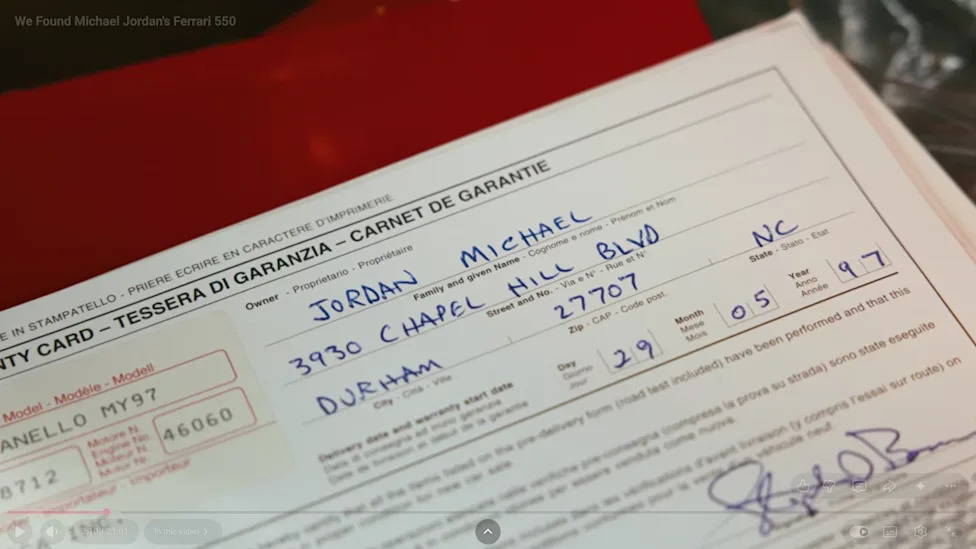 We Found Michael Jordan's Ferrari 550
E IN STAMPATELLO - PRIERE ECRIRE EN CARACTERE D'IMPRIMERIE
NTY CARD – TESSERA DI GARANZIA – CARNET DE GARANTIE
Owner - Proprietario - Propriétaire
JORDAN MICHAEL
Family and given Name - Cognome e nome - Prénom et Nom
3930 CHAPEL HILL BLVD NC
Street and No. - Via e N° - Rue et N° State - Stato - Etat
DURHAM 27707
City - Città - Ville Zip - CAP - Code post.
Delivery date and warranty start date
Data di consegna ed inizio garanzia
Date de livraison et début de la garantie
Day
Giorno
Jour
29
Month
Mese
Mois
05
Year
Anno
Année
97
Model - Modèle - Modell
ANELLO MY97
Motore N.
Engine No.
Moteur N.
Motor Nr.
46060
8712
Importateur - Importeur
and the items listed on the pre-delivery form (road test included) have been performed and that this
car sale.
pre-consegna (compresa la prova su strada) sono state eseguite
venduta come nuova.
les vérifications d'avant livraison (y compris l'essai sur route) on
véhicule neuf.
In this video